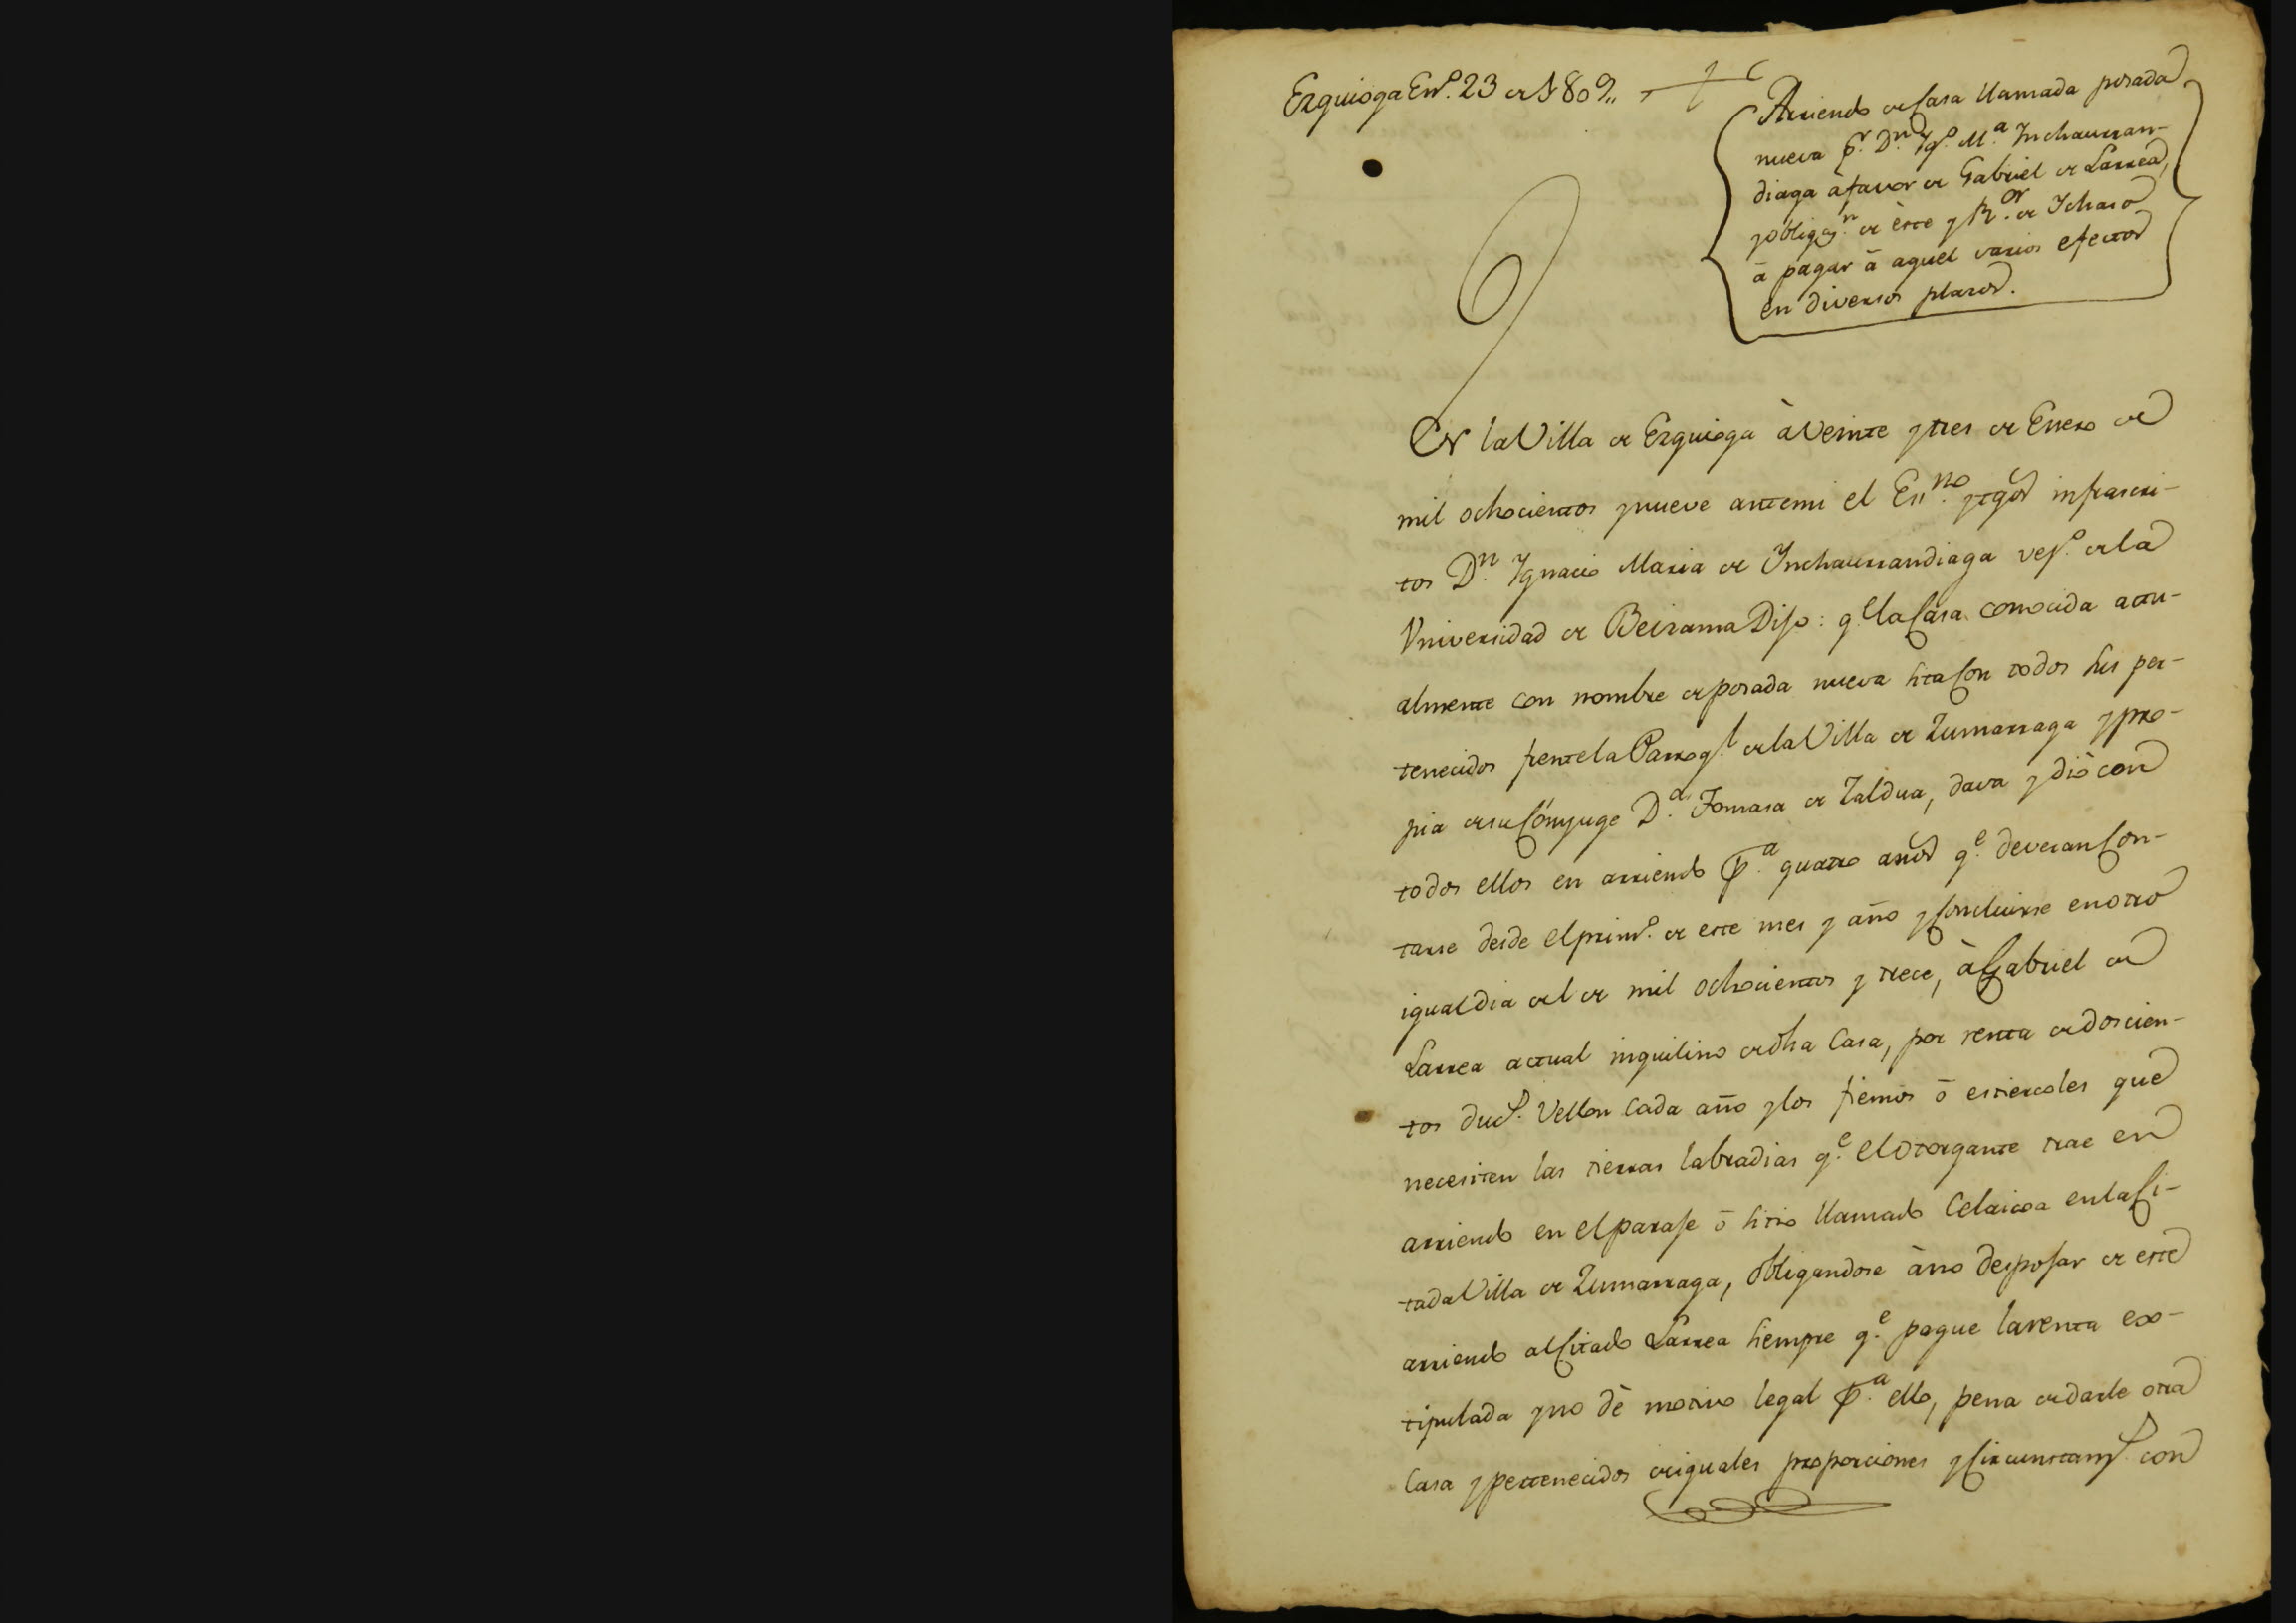 Ezquioga En.º 23 de 1809,,
Arriendo de Casa llamada posada
nueva p.r D.n Yg.º M.a Ynchaurran-
diaga à favor de Gabriel de Larrea,
y obligaz.n de èste y R.or de Ichaso
à pagar à aquel varios efectos
en diversos plazos.
En la Villa de Ezquioga à Veinte y tres de Enero de
mil ochocientos y nueve ante mi el Ess.no y tgos infrascri-
tos D.n Ygnacio Maria de Ynchaurrandiaga vez.º de la
Vniversidad de Beizama Dijo: q.e la Casa conocida actu-
almente con nombre de posada nueva sita Con todos sus per-
tenecidos frente la Parroq.l de la Villa de Zumarraga y pro-
pia de su Cónyuge D.a Tomasa de Zaldua, dava y diò con
todos ellos en arriendo p.a quatro años q.e deveran Con-
tarse desde el prim.º de este mes y año y Concluirse en otro
igual dia del de mil ochocientos y trece, à Gabriel de
Larrea actual inquilino de dha Casa, por renta de doscien-
tos duc.s Vellon Cada año y los fiemos ó estiercoles que
necesiten las tierras labradias q.e el Otorgante trae en
arriendo en el paraje ó sitio llamado Celaicoa en la Ci-
tada Villa de Zumarraga, obligandose à no despojar de este
arriendo al Citado Larrea siempre q.e pague la renta es-
tipulada y no dè motivo legal p.a ello, pena de darle otra
Casa y pertenecidos de iguales proporciones y Circunstan.s con